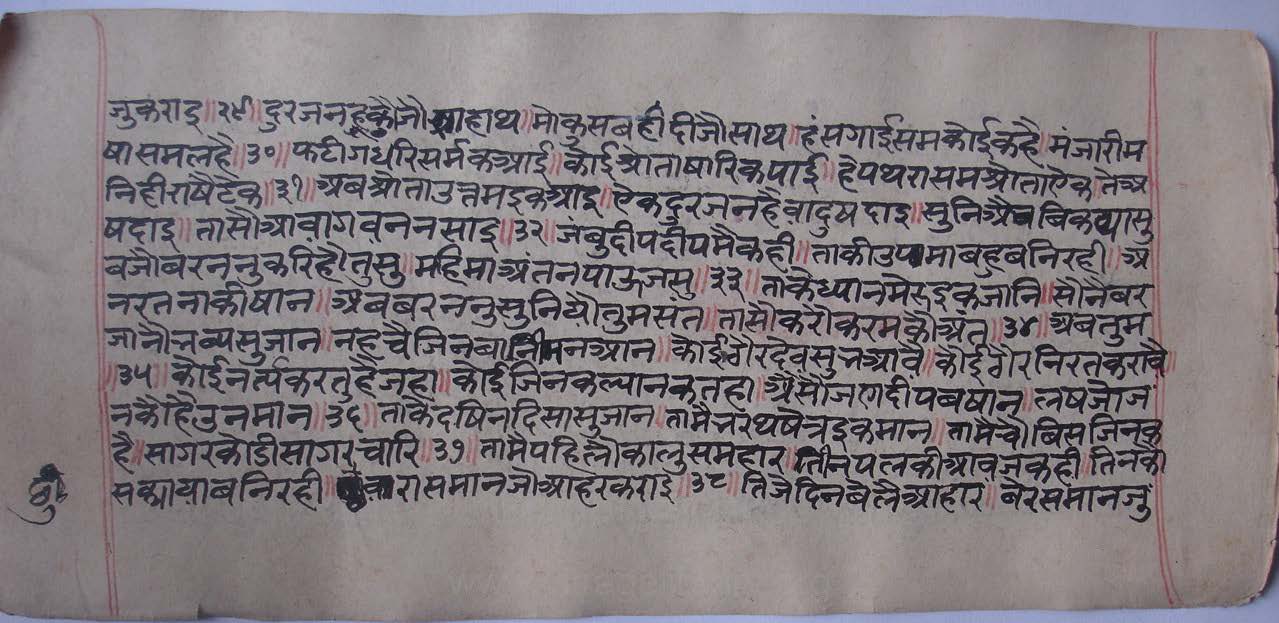 जुकराइ॥२९॥दुरजनहूकौजौजोहाथ॥मोकुसबहीदीजौसाथ॥हंसगाईसमकोईकहै॥मंजारीम
षासमलहै॥३०॥फटीगघरिसर्मकआई॥कोईश्रोताषारिकपाई॥हैपथरासमश्रोताऐक॥तेअ
निहीराषैटेक॥३१॥अबश्रोताउत्तमइकआइ॥ऐकदुरजनहैवादुषदाइ॥सुनिश्रैबबिकथासु
षदाइ॥तासौआवागवनननसाइ॥३२॥जंबुदीपदीपमैकही॥ताकीउपमाबहुबनिरही॥अ
बजौबरननुकरिहौतुसु॥महिमाअंतनपाऊजसु॥३३॥ताकेध्यानमेरुइकजानि॥सौनेबर
नरतनाकीषान॥अबबरननुसुनियौतुमसंत॥तासौकरौकरमकौअंत॥३४॥अबतुम
जानौनव्यसुजान॥नहचैजिनबानीमनआन॥कोईगैरदेवसुनआवै॥कोईगैरनिरतकरावै
॥३५॥कोईनर्त्यकरतुहैजहा॥कोईजिनकल्यानकतहा॥अैसौजणदीपबषान॥लषजोजं
नकौहैउनमान॥३६॥ताकेदषिनदिसासुजान॥तामैन्नरथषेत्रइकमान॥तामैचौबिसजिनकु
है॥सागरकोडीसागरचारि॥३७॥तामैपहिलौकालुसमहार॥तीनपलकीआवजकही॥तिनकी
सकायाबनिरही॥वारासमानजोआहरकराइ॥३८॥तिजैदिनबेलैआहार॥बेरसमानजु